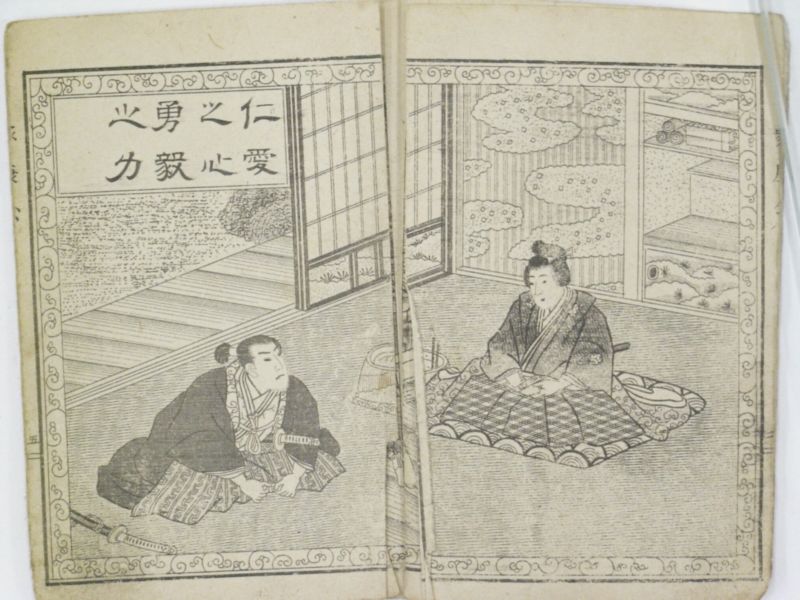 仁愛
之心
勇毅
之力